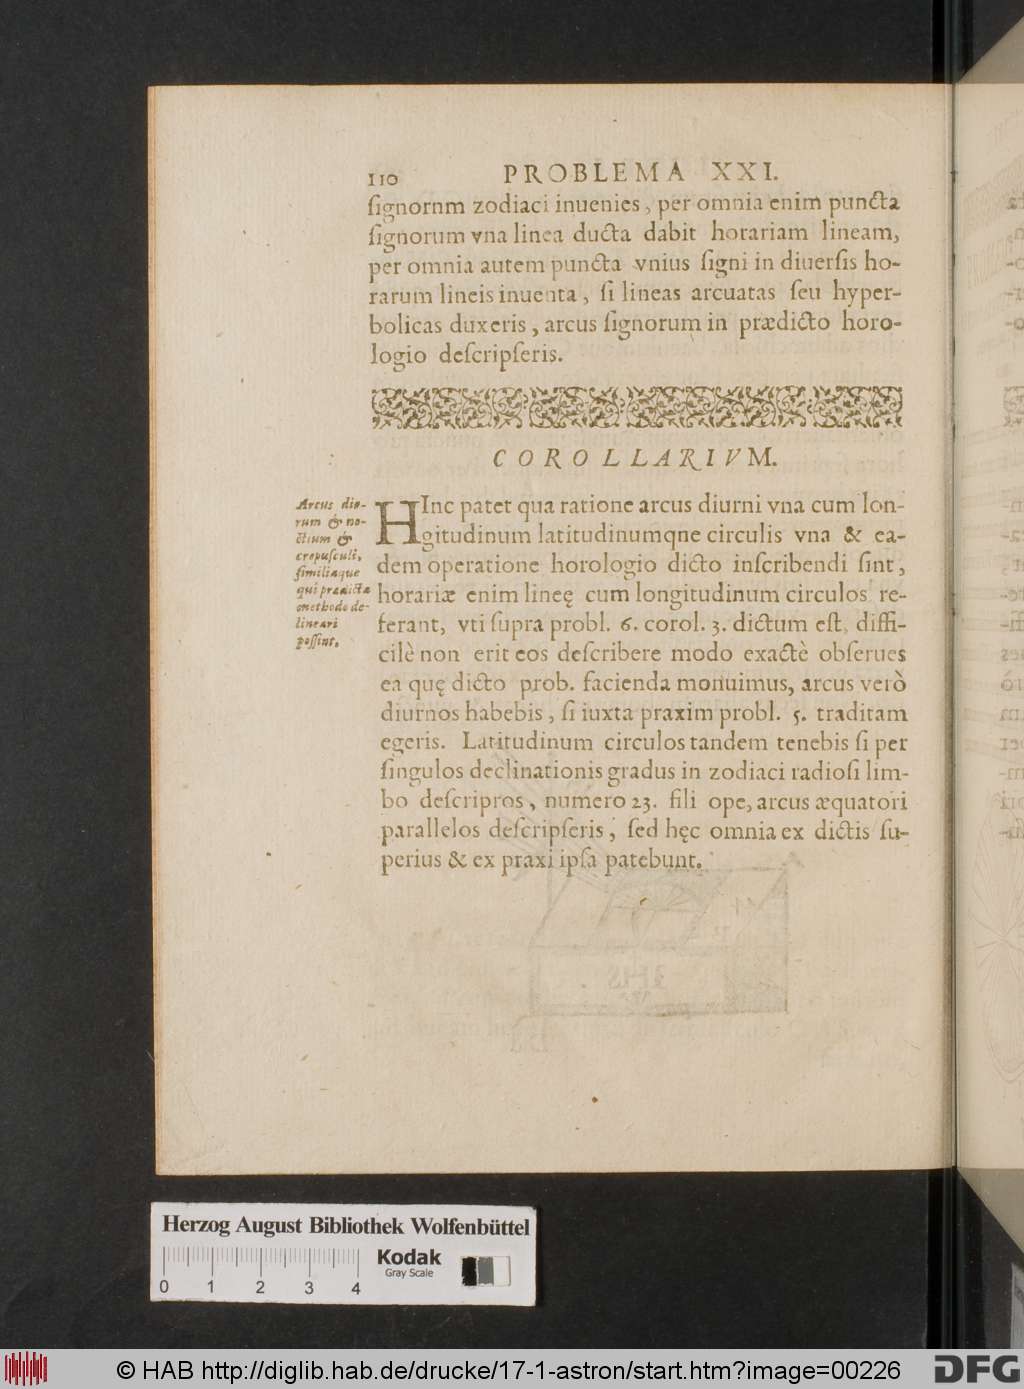 110 PROBLEMA XXI.
ſignornm zodiaci inuenies, per omnia enim puncta
ſignorum vna linea ducta dabit horariam lineam,
per omnia autem puncta vnius ſigni in diuerſis ho-
rarum lineis inuenta, ſi lineas arcuatas ſeu hyper-
bolicas duxeris, arcus ſignorum in prædicto horo-
logio deſcripſeris.
COROLLARIVM.
Arcus diu-
rum & no-
ctium &
crepuſculi,
ſimiliaque
qui prædicta
methodo de-
lineari
poſſint.
HInc patet qua ratione arcus diurni vna cum lon-
gitudinum latitudinumqne circulis vna & ea-
dem operatione horologio dicto inſcribendi ſint,
horariæ enim lineę cum longitudinum circulos re-
ferant, vti ſupra probl. 6. corol. 3. dictum eſt, diffi-
cilè non erit eos deſcribere modo exactè obſerues
ea quę dicto prob. facienda monuimus, arcus verò
diurnos habebis, ſi iuxta praxim probl. 5. traditam
egeris. Latitudinum circulos tandem tenebis ſi per
ſingulos declinationis gradus in zodiaci radioſi lim-
bo deſcriptos, numero 23. fili ope, arcus æquatori
parallelos deſcripſeris, ſed hęc omnia ex dictis ſu-
perius & ex praxi ipſa patebunt.
Herzog August Bibliothek Wolfenbüttel
Kodak
Gray Scale
0 1 2 3 4
© HAB http://diglib.hab.de/drucke/17-1-astron/start.htm?image=00226
DFG